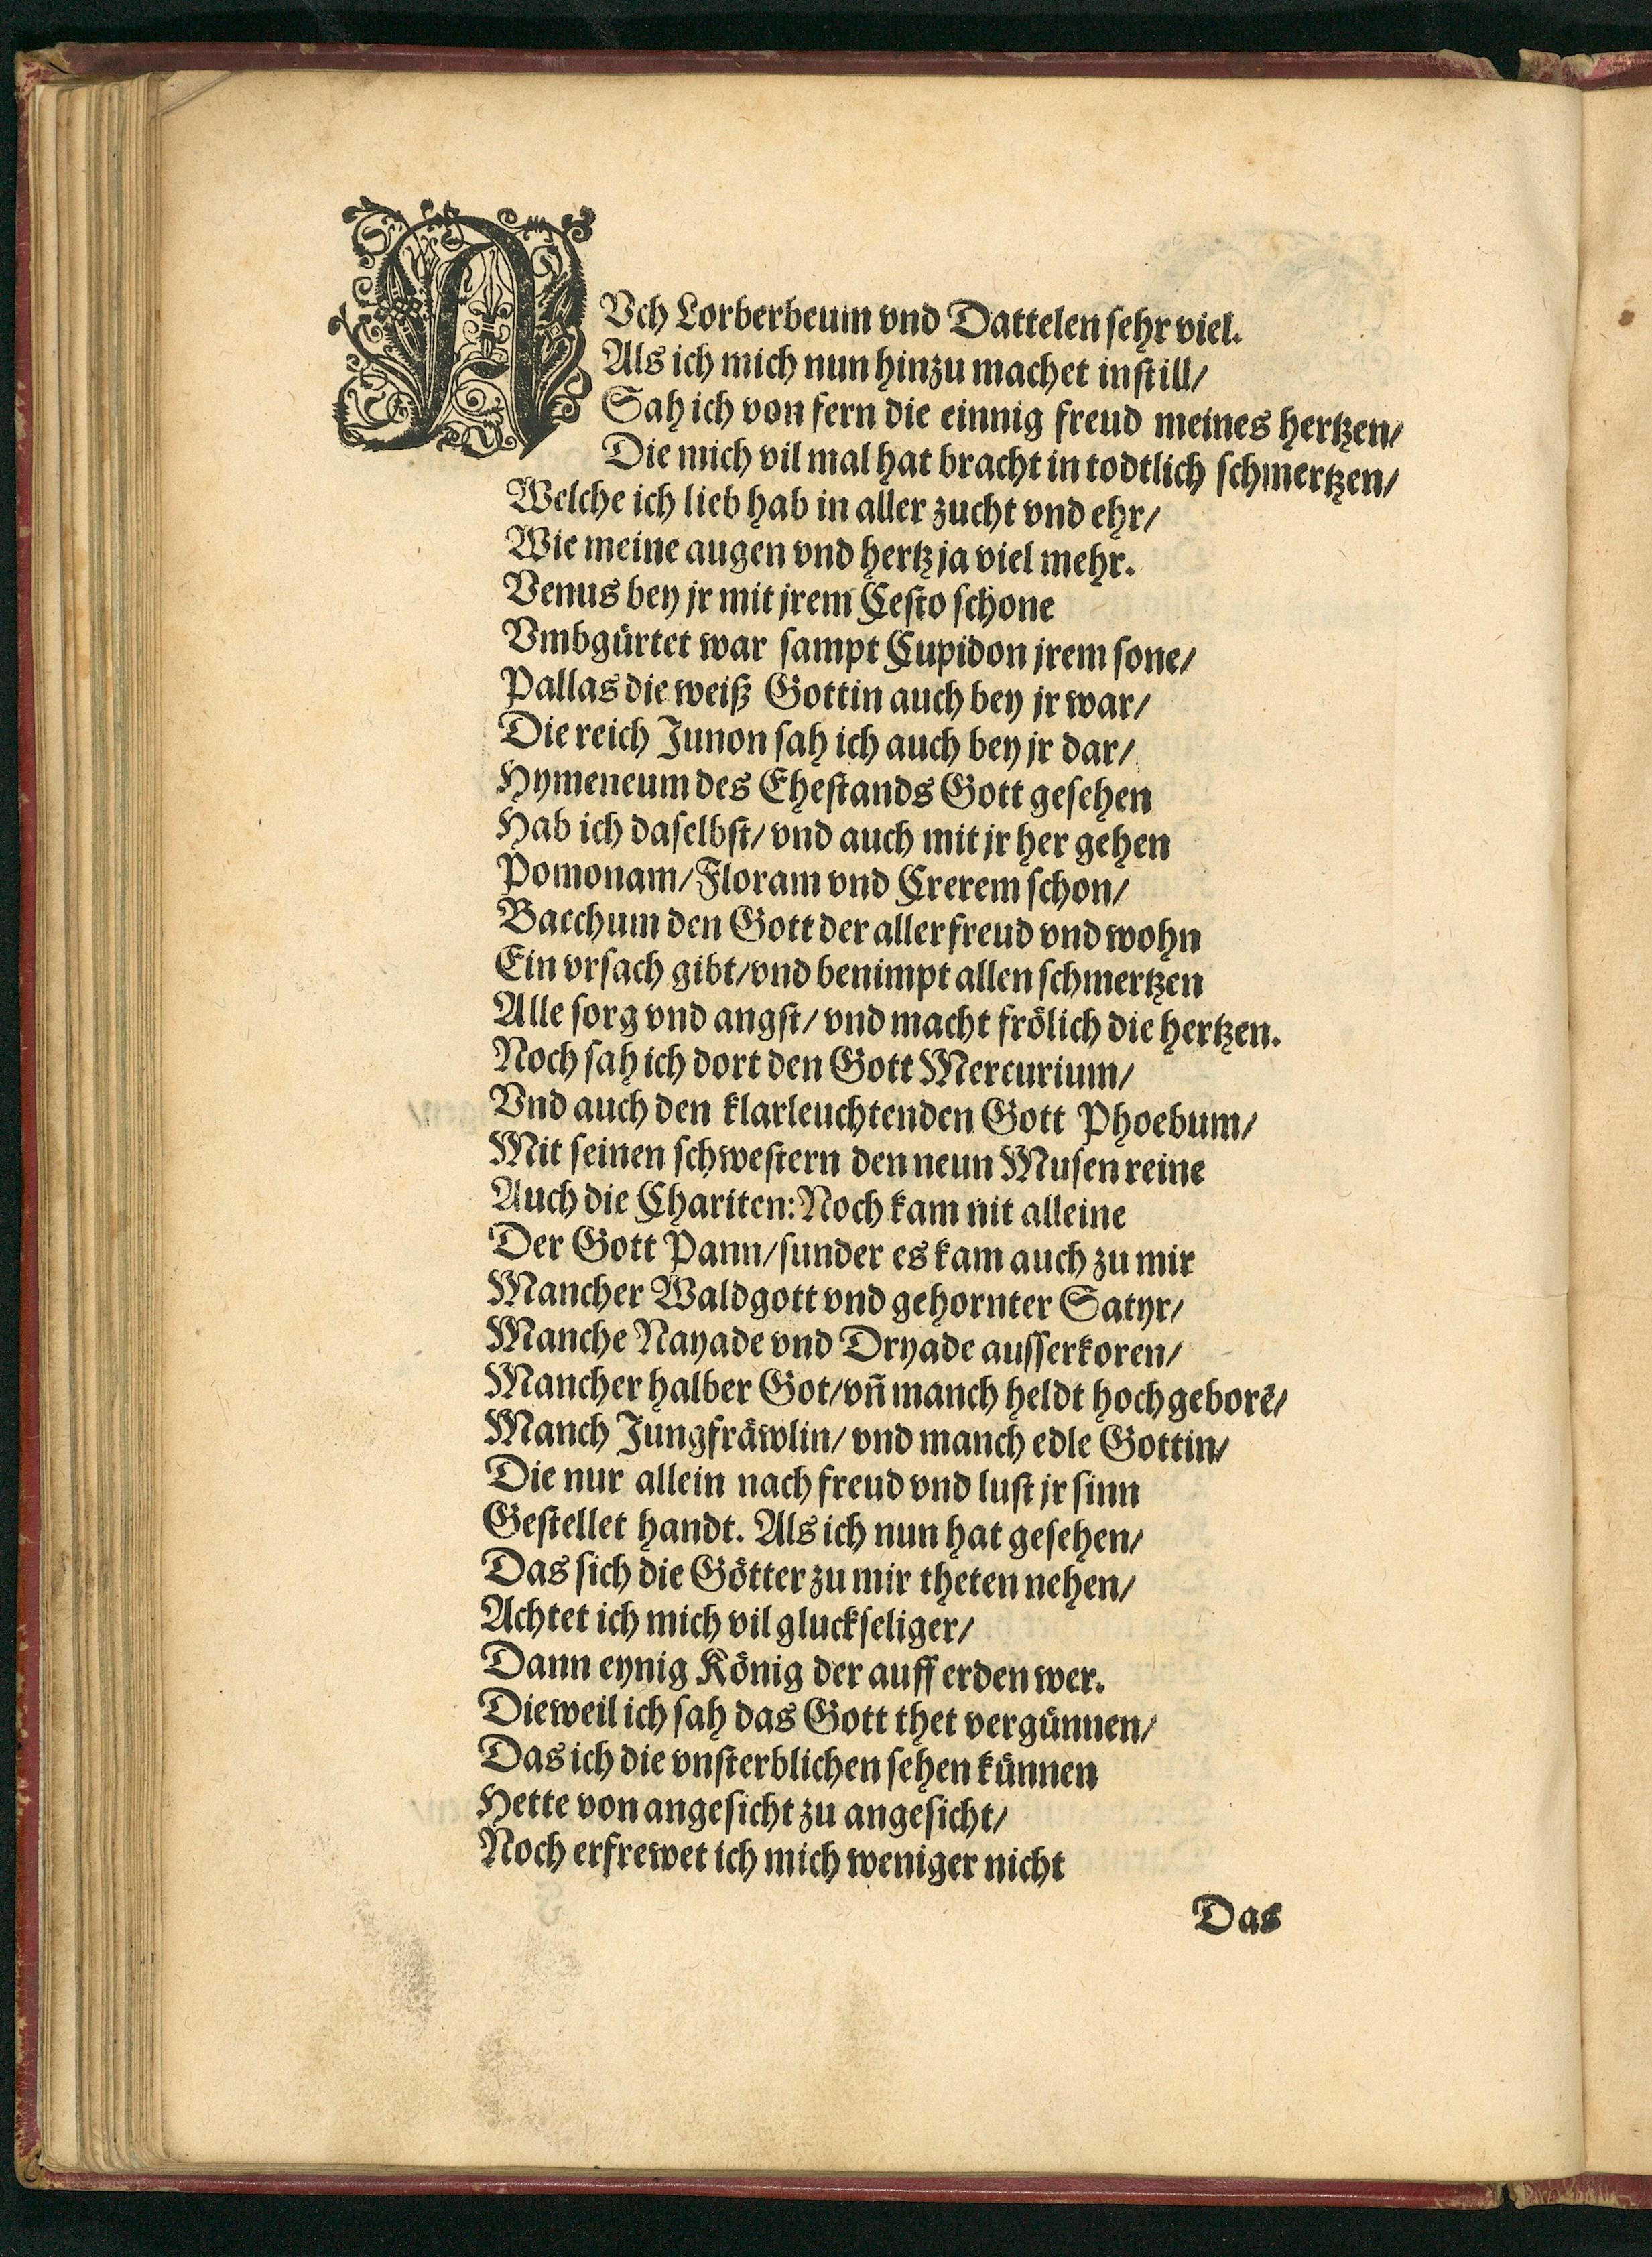 AVch Lorberbeum vnd Dattelen sehr viel.
Als ich mich nun hinzu machet instill/
Sah ich von fern die einnig freud meines hertzen/
Die mich vil mal hat bracht in todtlich schmertzen/
Welche ich lieb hab in aller zucht vnd ehr/
Wie meine augen vnd hertz ja viel mehr.
Venus bey jr mit jrem Cesto schone
Vmbgürtet war sampt Cupidon jrem sone/
Pallas die weiß Gottin auch bey jr war/
Die reich Junon sah ich auch bey jr dar/
Hymeneum des Ehestands Gott gesehen
Hab ich daselbst/ vnd auch mit jr her gehen
Pomonam/ Floram vnd Crerem schon/
Bacchum den Gott der aller freud vnd wohn
Ein vrsach gibt/ vnd benimpt allen schmertzen
Alle sorg vnd angst/ vnd macht frölich die hertzen.
Noch sah ich dort den Gott Mercurium/
Vnd auch den klarleuchtenden Gott Phoebum/
Mit seinen schwestern den neun Musen reine
Auch die Chariten: Noch kam nit alleine
Der Gott Pann/ sunder es kam auch zu mir
Mancher Waldgott vnd gehornter Satyr/
Manche Nayade vnd Dryade ausserkoren/
Mancher halber Got/ vñ manch heldt hochgeborẽ/
Manch Jungfräwlin/ vnd manch edle Gottin/
Die nur allein nach freud vnd lust jr sinn
Gestellet handt. Als ich nun hat gesehen/
Das sich die Götter zu mir theten nehen/
Achtet ich mich vil gluckseliger/
Dann eynig König der auff erden wer.
Dieweil ich sah das Gott thet vergünnen/
Das ich die vnsterblichen sehen künnen
Hette von angesicht zu angesicht/
Noch erfrewet ich mich weniger nicht
Das